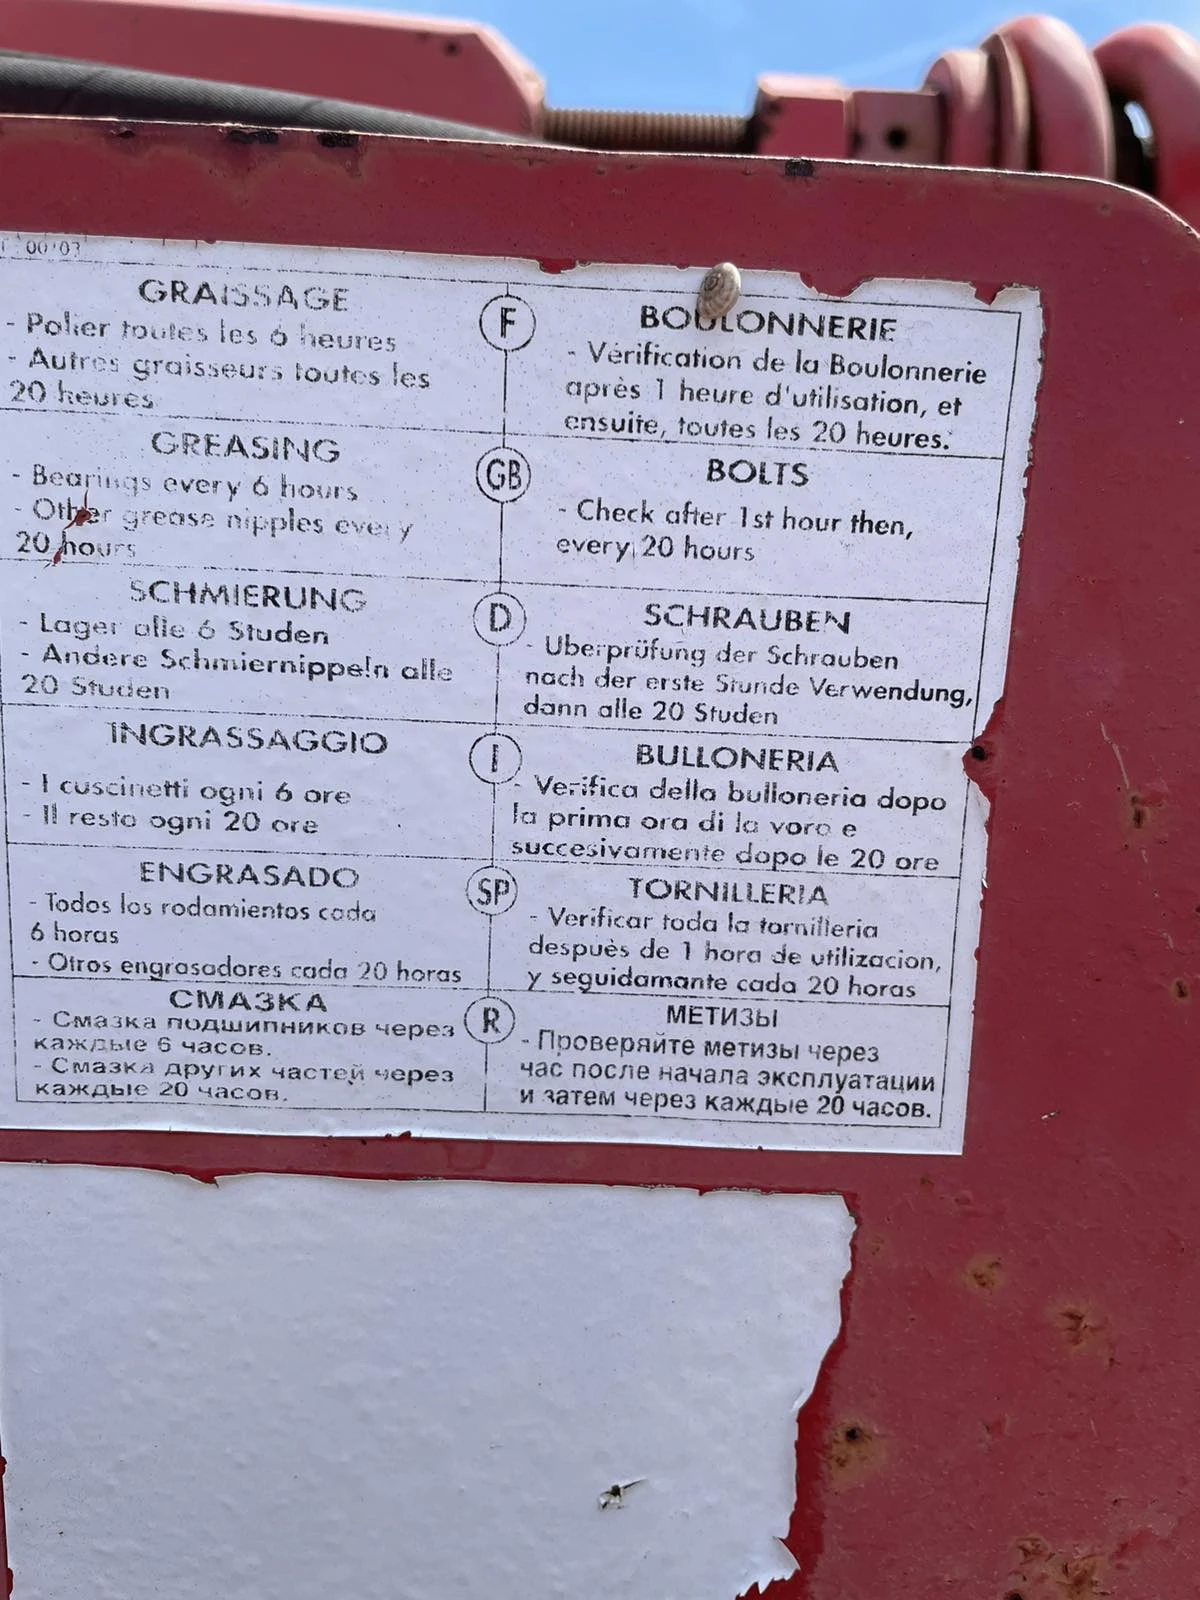 00'03
GRAISSAGE
- Palier toutes les 6 heures
- Autres graisseurs toutes les
20 heures
F
BOULONNERIE
- Vérification de la Boulonnerie
après 1 heure d'utilisation, et
ensuite, toutes les 20 heures.
GREASING
- Bearings every 6 hours
- Other grease nipples every
20 hours
GB
BOLTS
- Check after 1st hour then,
every 20 hours
SCHMIERUNG
- Lager alle 6 Studen
- Andere Schmiernippeln alle
20 Studen
D
SCHRAUBEN
- Uberprüfung der Schrauben
nach der erste Stunde Verwendung,
dann alle 20 Studen
INGRASSAGGIO
- I cuscinetti ogni 6 ore
- Il resto ogni 20 ore
I
BULLONERIA
- Verifica della bulloneria dopo
la prima ora di la voro e
succesivamente dopo le 20 ore
ENGRASADO
- Todos los rodamientos cada
6 horas
- Otros engrasadores cada 20 horas
SP
TORNILLERIA
- Verificar toda la tornilleria
despuès de 1 hora de utilizacion,
y seguidamante cada 20 horas
СМАЗКА
- Смазка подшипников через
каждые 6 часов.
- Смазка других частей через
каждые 20 часов.
R
МЕТИЗЫ
- Проверяйте метизы через
час после начала эксплуатации
и затем через каждые 20 часов.